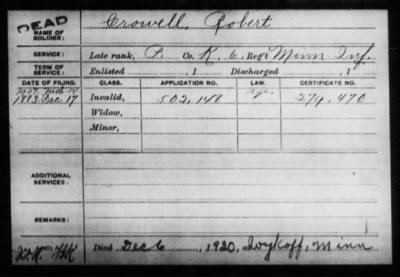 DEAD
NAME OF SOLDIER: Crowell, Robert
SERVICE: Late rank, P. Co. K, 6, Reg't Minn Inf.
TERM OF SERVICE: Enlisted , 1 Discharged , 1
DATE OF FILING. CLASS. APPLICATION NO. LAW. CERTIFICATE NO.
1907. Mch. age,
1883. Dec. 17 Invalid, 502,148 279,470
Widow,
Minor,
ADDITIONAL SERVICES:
REMARKS:
Died Dec 6, 1920, Wykoff, Minn